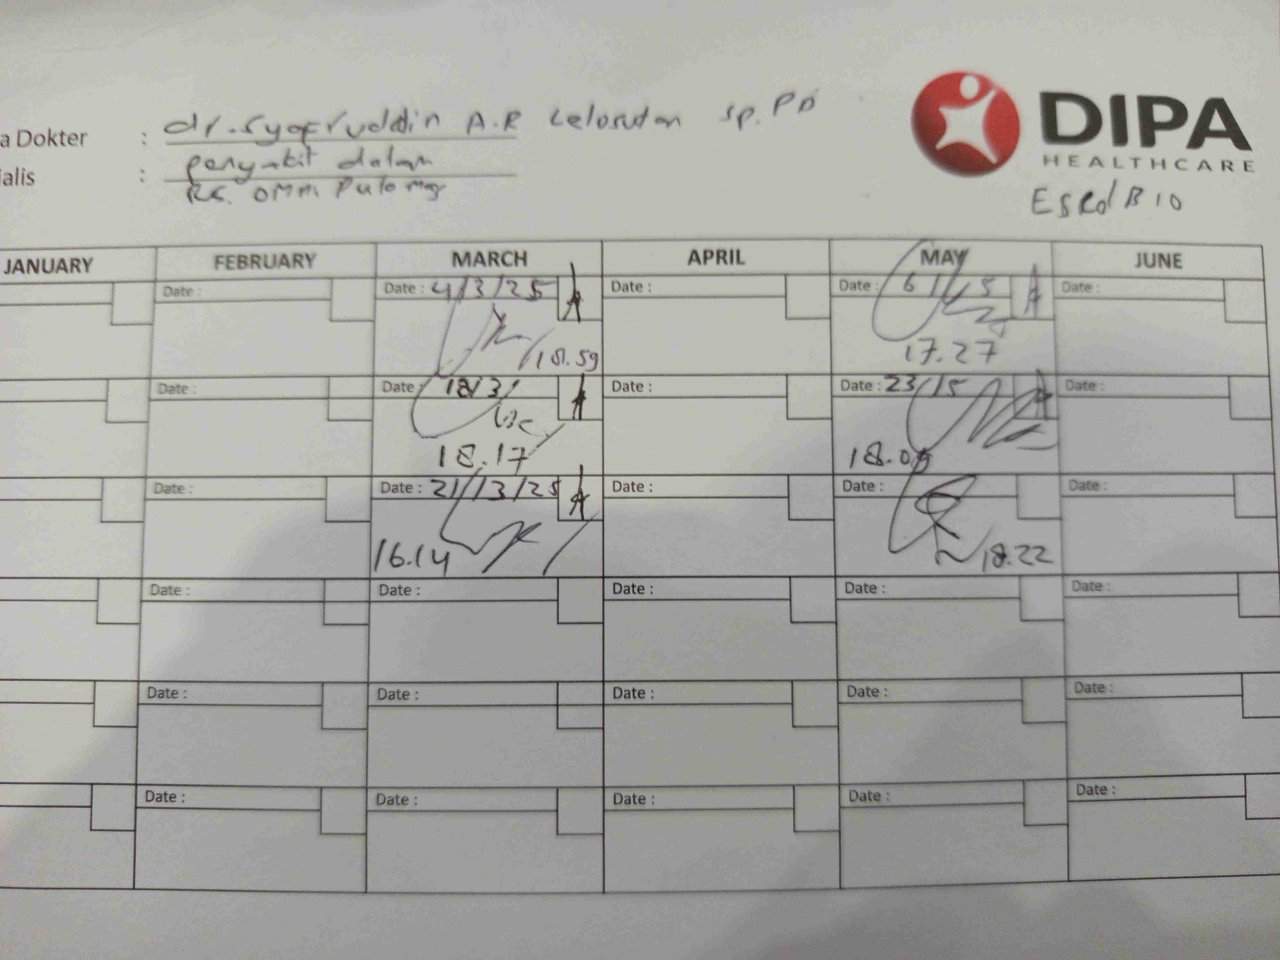 DIPA
HEALTHCARE
a Dokter : dr. Syafruddin A.R Lelosutan Sp.PD
ialis : penyakit dalam
RS. OMNI Pulomas
JANUARY FEBRUARY MARCH APRIL MAY JUNE
Date : Date : 4/3/25 A Date : Date : 6/5 A Date :
17.27
Date : Date : 18/3/ A Date : Date : 23/5 A Date :
18.17 18.09
Date : Date : 21/3/25 A Date : Date : Date :
16.14 18.22
Date : Date : Date : Date : Date :
Date : Date : Date : Date : Date :
Date : Date : Date : Date : Date :